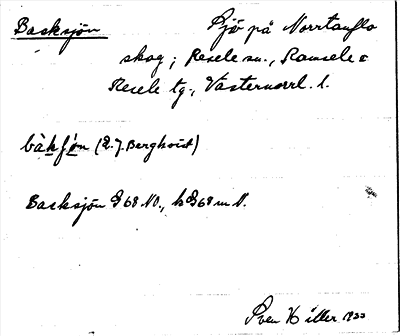 Backsjön Sjö på Norrtanflo
skog; Resele sn., Ramsele o
Resele tg., Västernorrl. l.
(E. J. Berghvist)
Backsjön G68 NO., h G68 m N.
Sven Hiller 1933